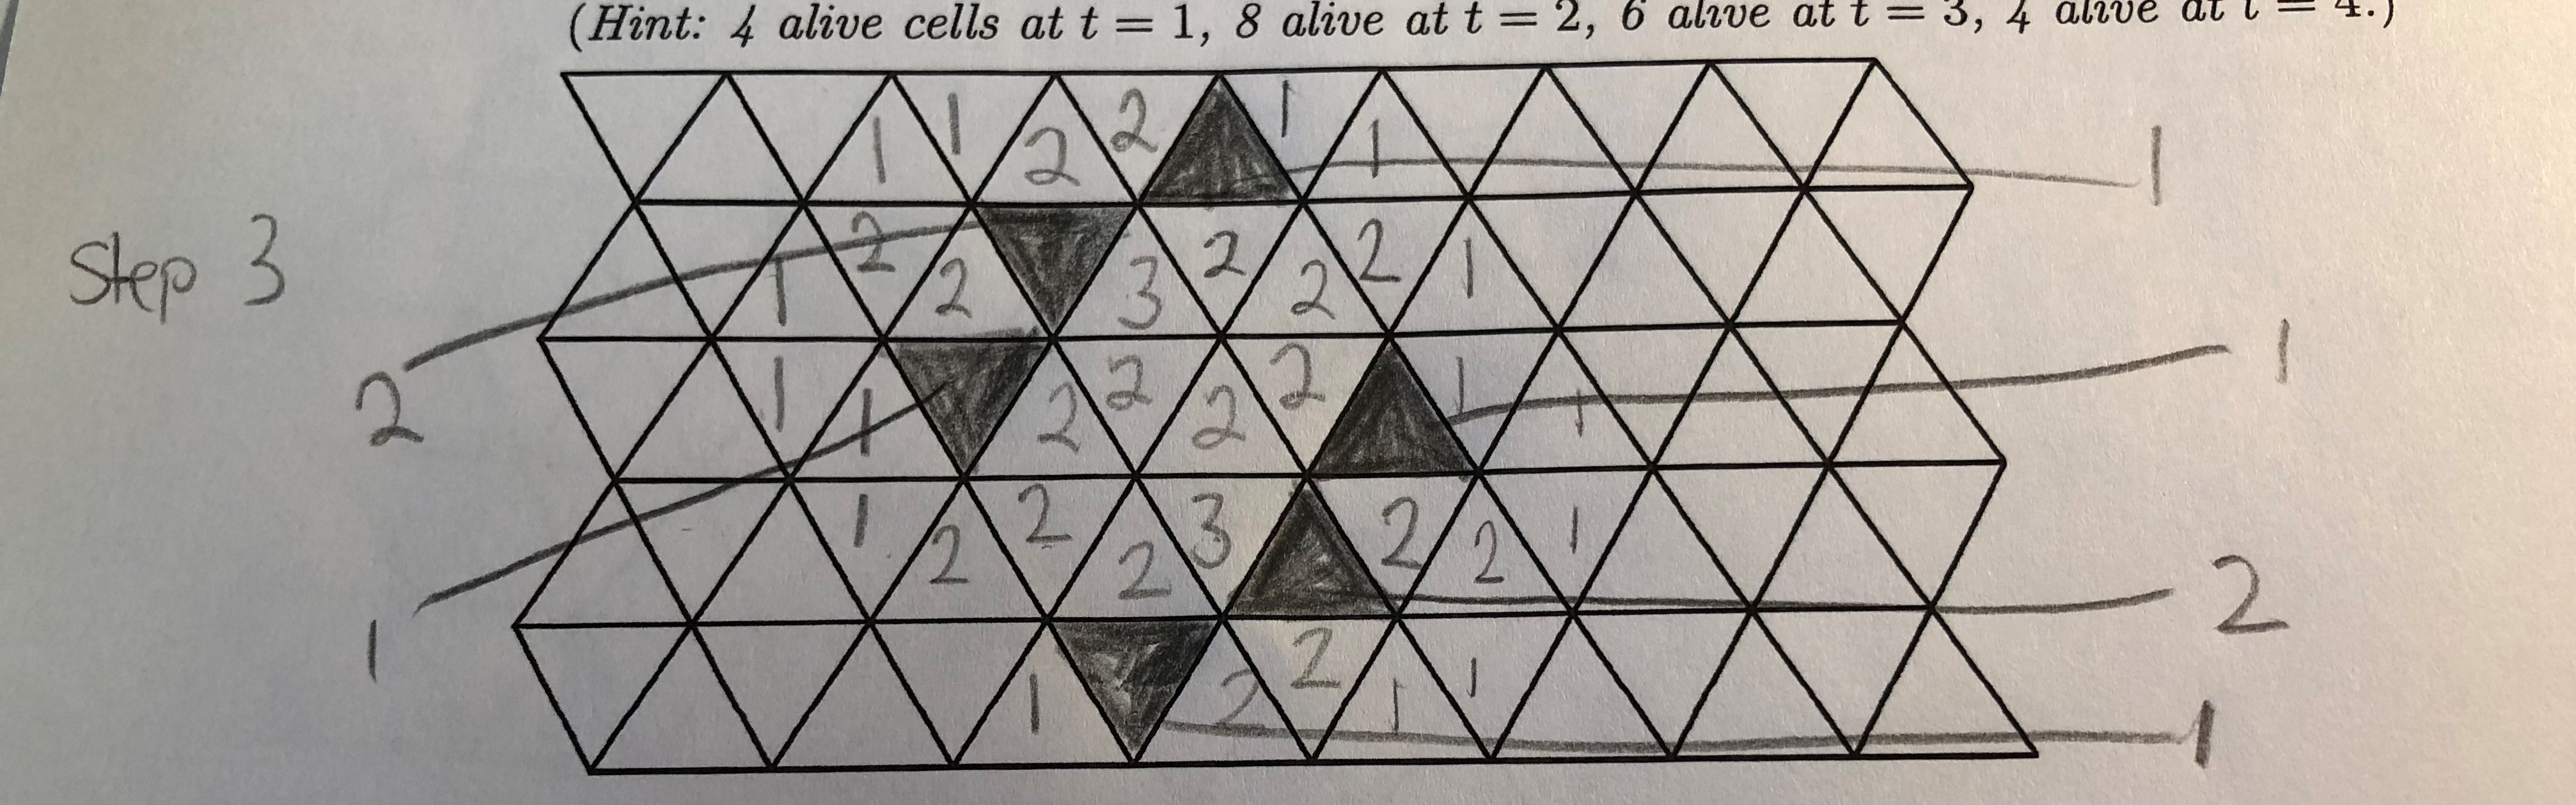 (Hint: 4 alive cells at t = 1, 8 alive at t = 2, 6 alive at t = 3, 4 alive at t = 4.)
1 1 2 2 1 1 1
Step 3
1 2 2 3 2 2 2 1
2
1 1 2 2 2 2 1 1 1
1 2 2 2 3 2 2 1
2
1
1 2 2 1 1 1